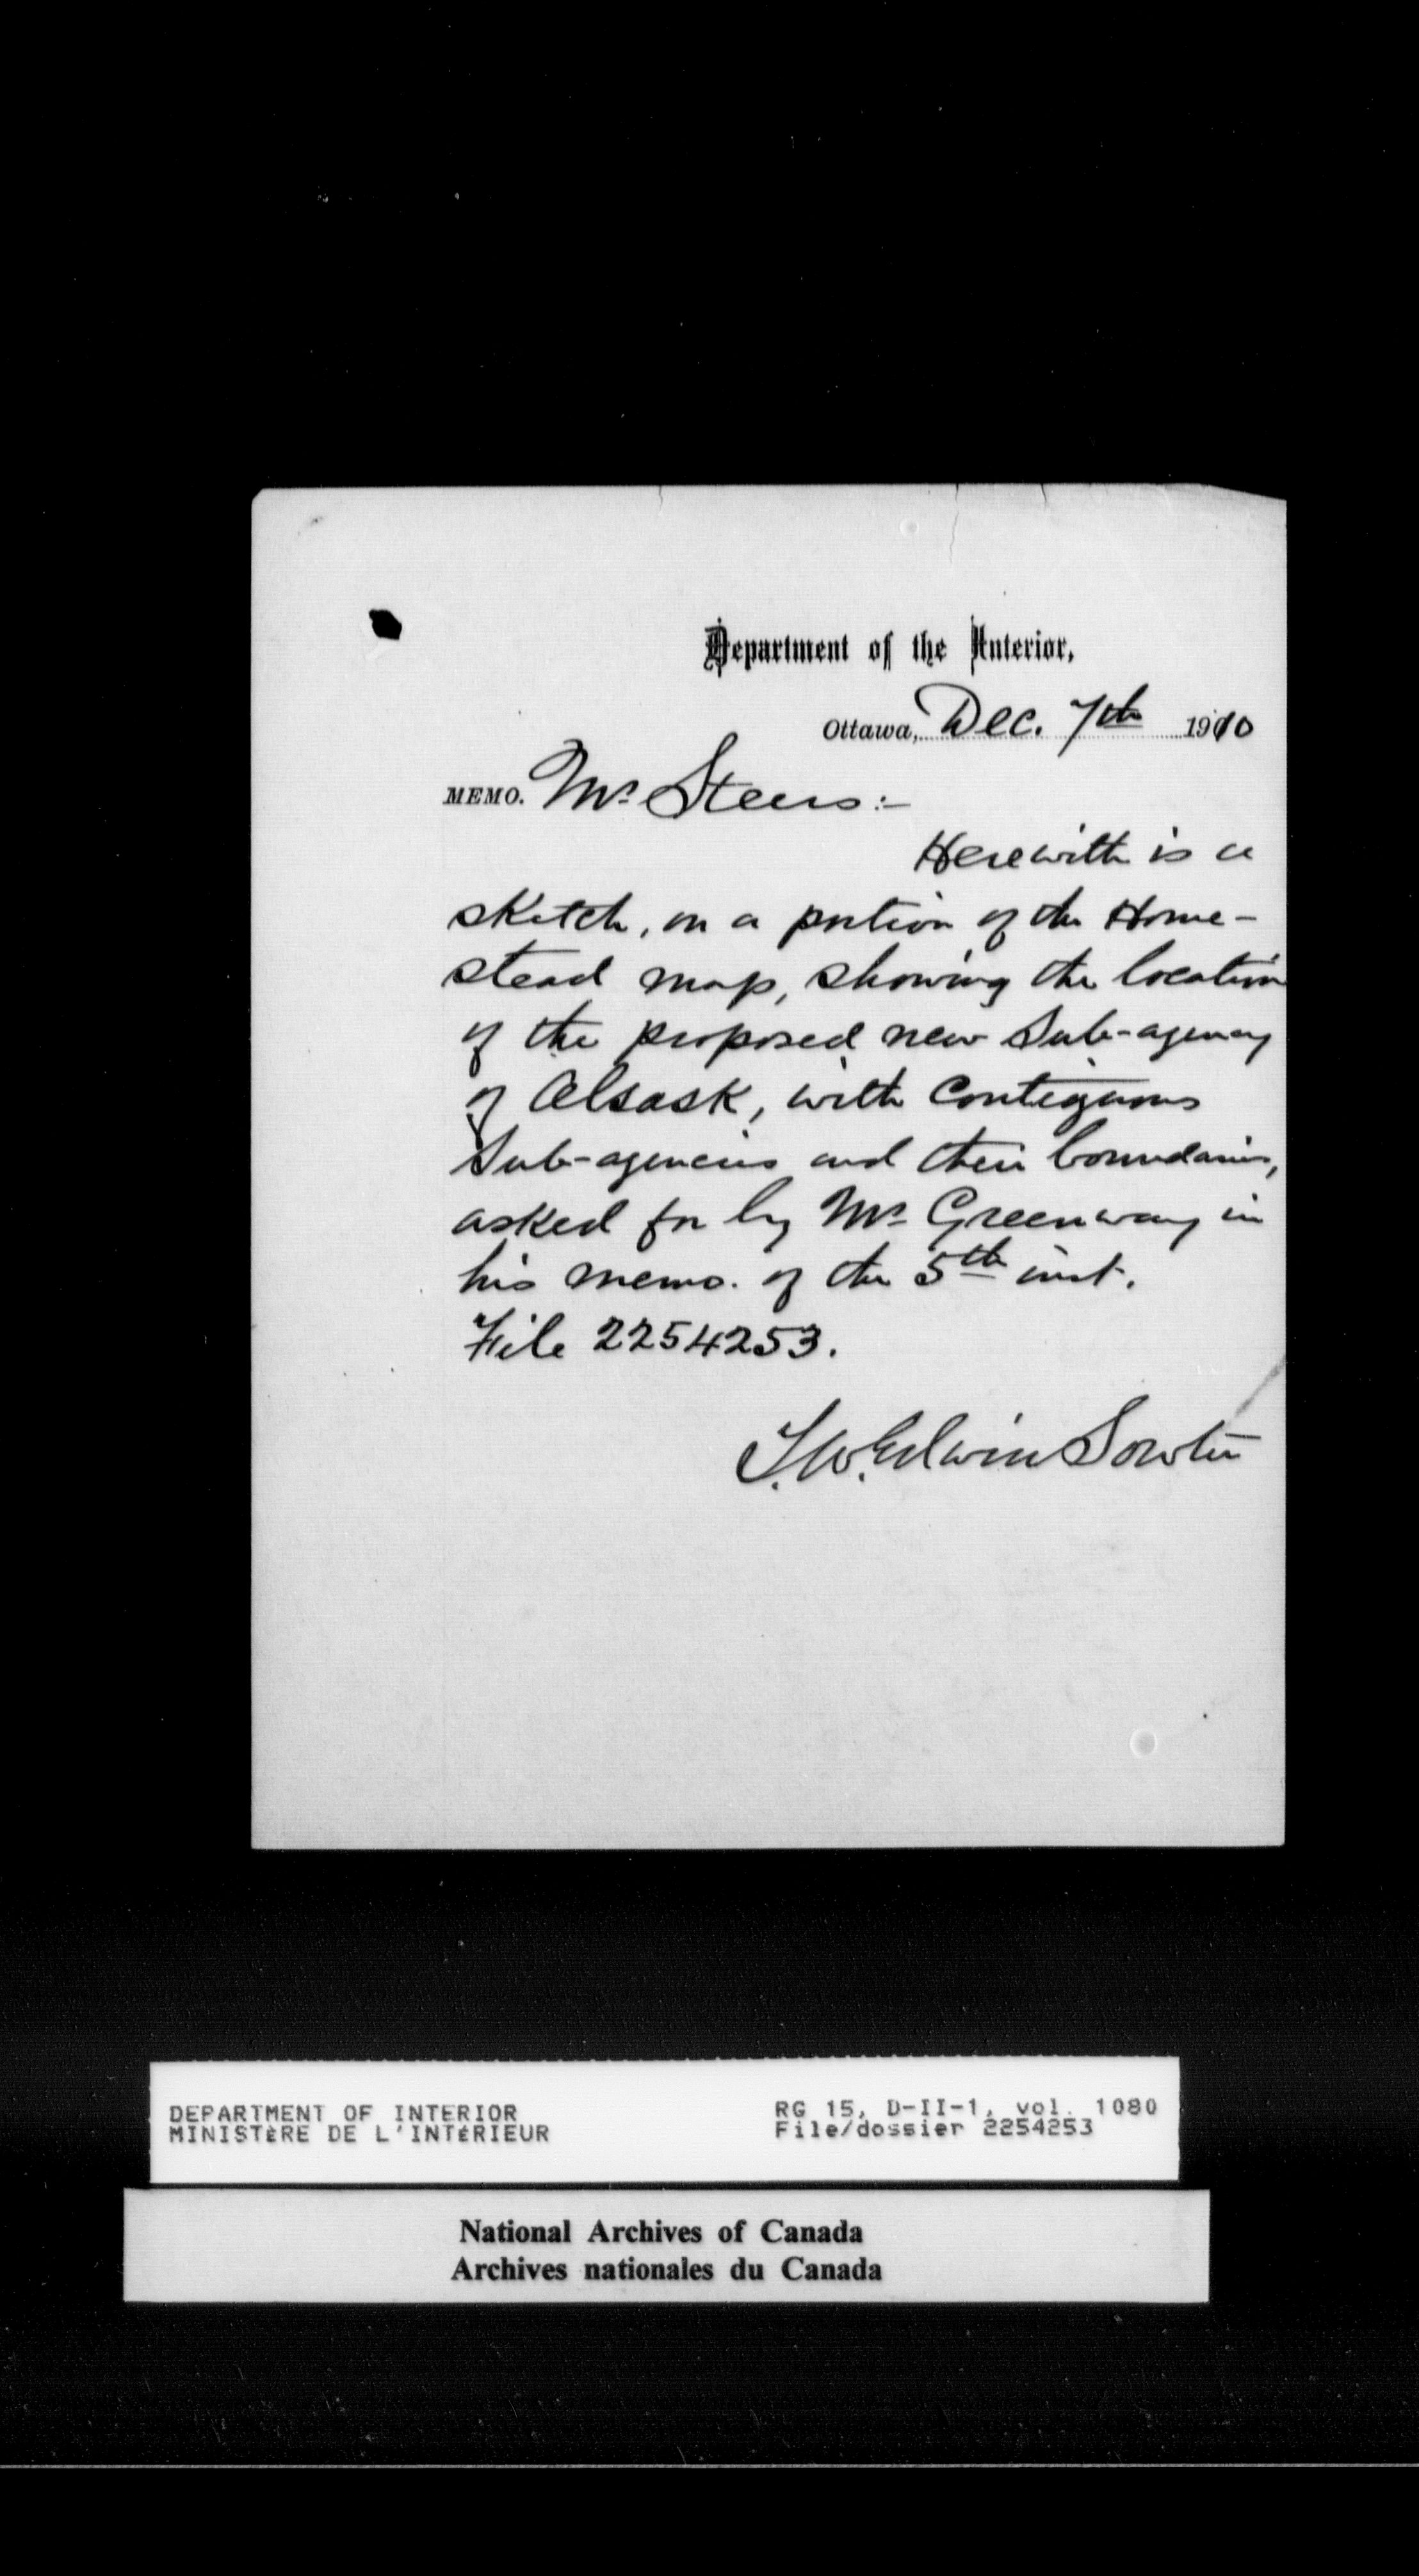 Department of the Interior,
Ottawa, Dec. 7th 1910
MEMO. Mr Steers:-
Herewith is a
sketch, on a portion of the Home-
stead map, showing the location
of the proposed new Sub-agency
of Alsask, with contiguous
Sub-agencies and their boundaries,
asked for by Mr Greenway in
his memo. of the 5th inst.
File 2254253.
T.W. Edwin Sowter
DEPARTMENT OF INTERIOR
MINISTÈRE DE L'INTÉRIEUR
RG 15, D-II-1, vol. 1080
File/dossier 2254253
National Archives of Canada
Archives nationales du Canada